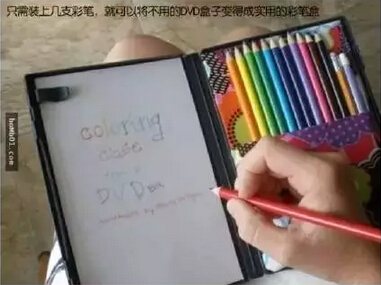 只需装上几支彩笔，就可以将不用的DVD盒子变得成实用的彩笔盒
coloring
case
DVD
bomb01.com